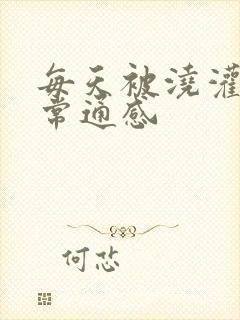 每天被浇灌
常通感
何忿